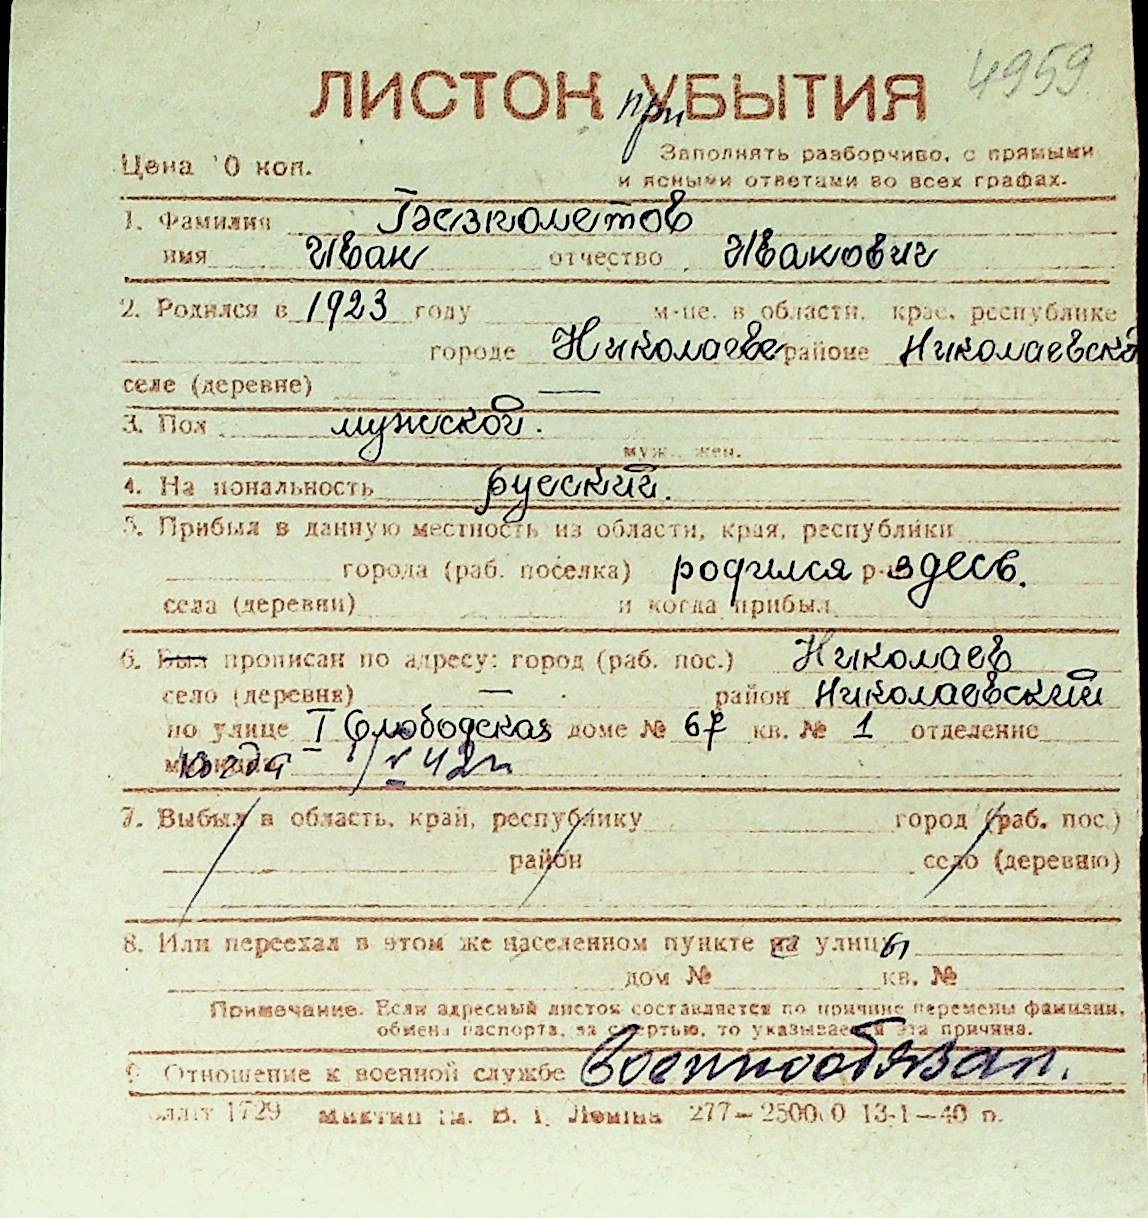 4959
ЛИСТОК при УБЫТИЯ
Цена 10 коп.
Заполнять разборчиво, с прямыми
и ясными ответами во всех графах.
1. Фамилия Безкометов
имя Иван отчество Иванович
2. Родился в 1923 году м-це. в области, крае, республике
городе Николаеве районе Николаевско
селе (деревне) —
3. Пол мужской.
муж., жен.
4. Национальность русский.
5. Прибыл в данную местность из области, края, республики
города (раб. поселка) родился здесь.
села (деревни) и когда прибыл
6. Был прописан по адресу: город (раб. пос.) Николаев
село (деревня) — район Николаевский
по улице I Слободская доме № 67 кв. № 1 отделение
когда
7. Выбыл в область, край, республику город (раб. пос.)
район село (деревню)
8. Или переехал в этом же населенном пункте на улицу
дом № кв. №
Примечание. Если адресный листок составляется по причине перемены фамилии,
обмена паспорта, за смертью, то указывается эта причина.
9. Отношение к военной службе Военнообязан.
лліт 1729 Миктип ім. В. І. Леніна 277—250000 13-1—40 р.